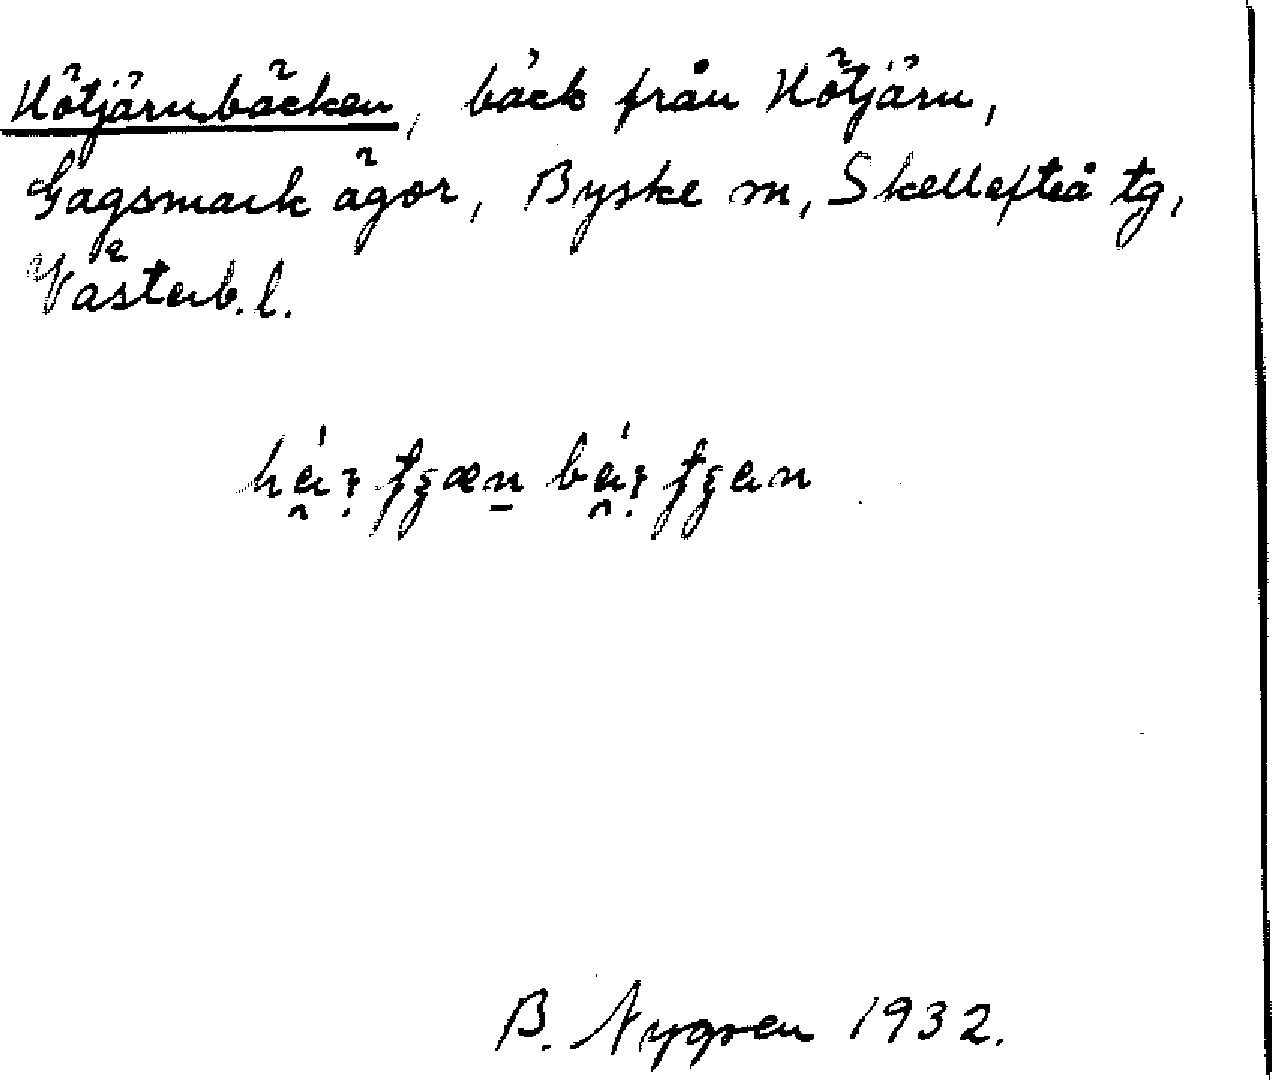 Hötjärnbäcken, bäck från Hötjärn,
Gagsmark ägor, Byske sn, Skellefteå tg,
Västerb. l.
B. Nygren 1932.